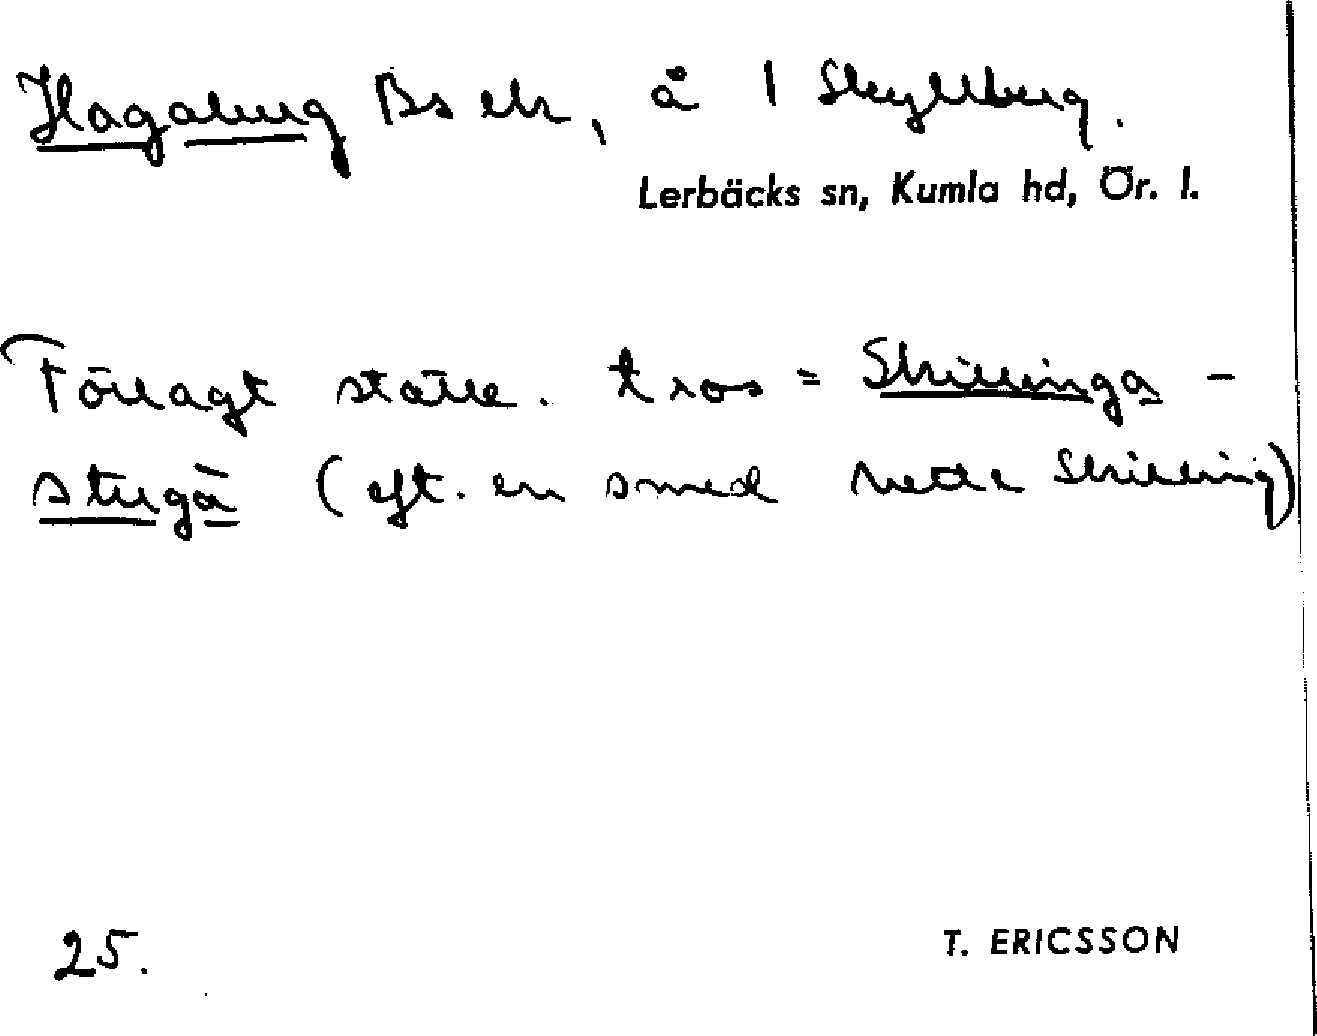 Hagaberg Bs ek, å 1 Skyllberg.
Lerbäcks sn, Kumla hd, Ör. l.
Förlagt ställe. tros = Skrillinga -
stugä (eft. en smed hette Skrilling)
25.
T. ERICSSON